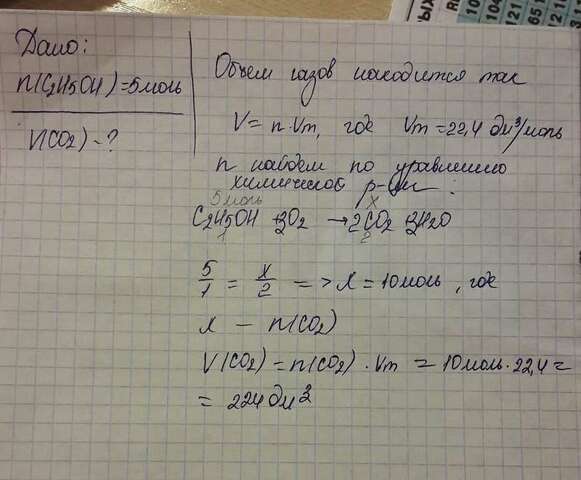 Дано:
n(C2H5OH)=5моль
V(CO2)-?
Объем газов находится так
V=n·Vm, где Vm=22,4 дм³/моль
n найдем по уравнению
химической р-ции:
5моль x
C2H5OH +3O2 →2CO2 +3H2O
1 2
5/1 = x/2 => x=10моль, где
x – n(CO2)
V(CO2)=n(CO2)·Vm = 10моль·22,4=
= 224дм³